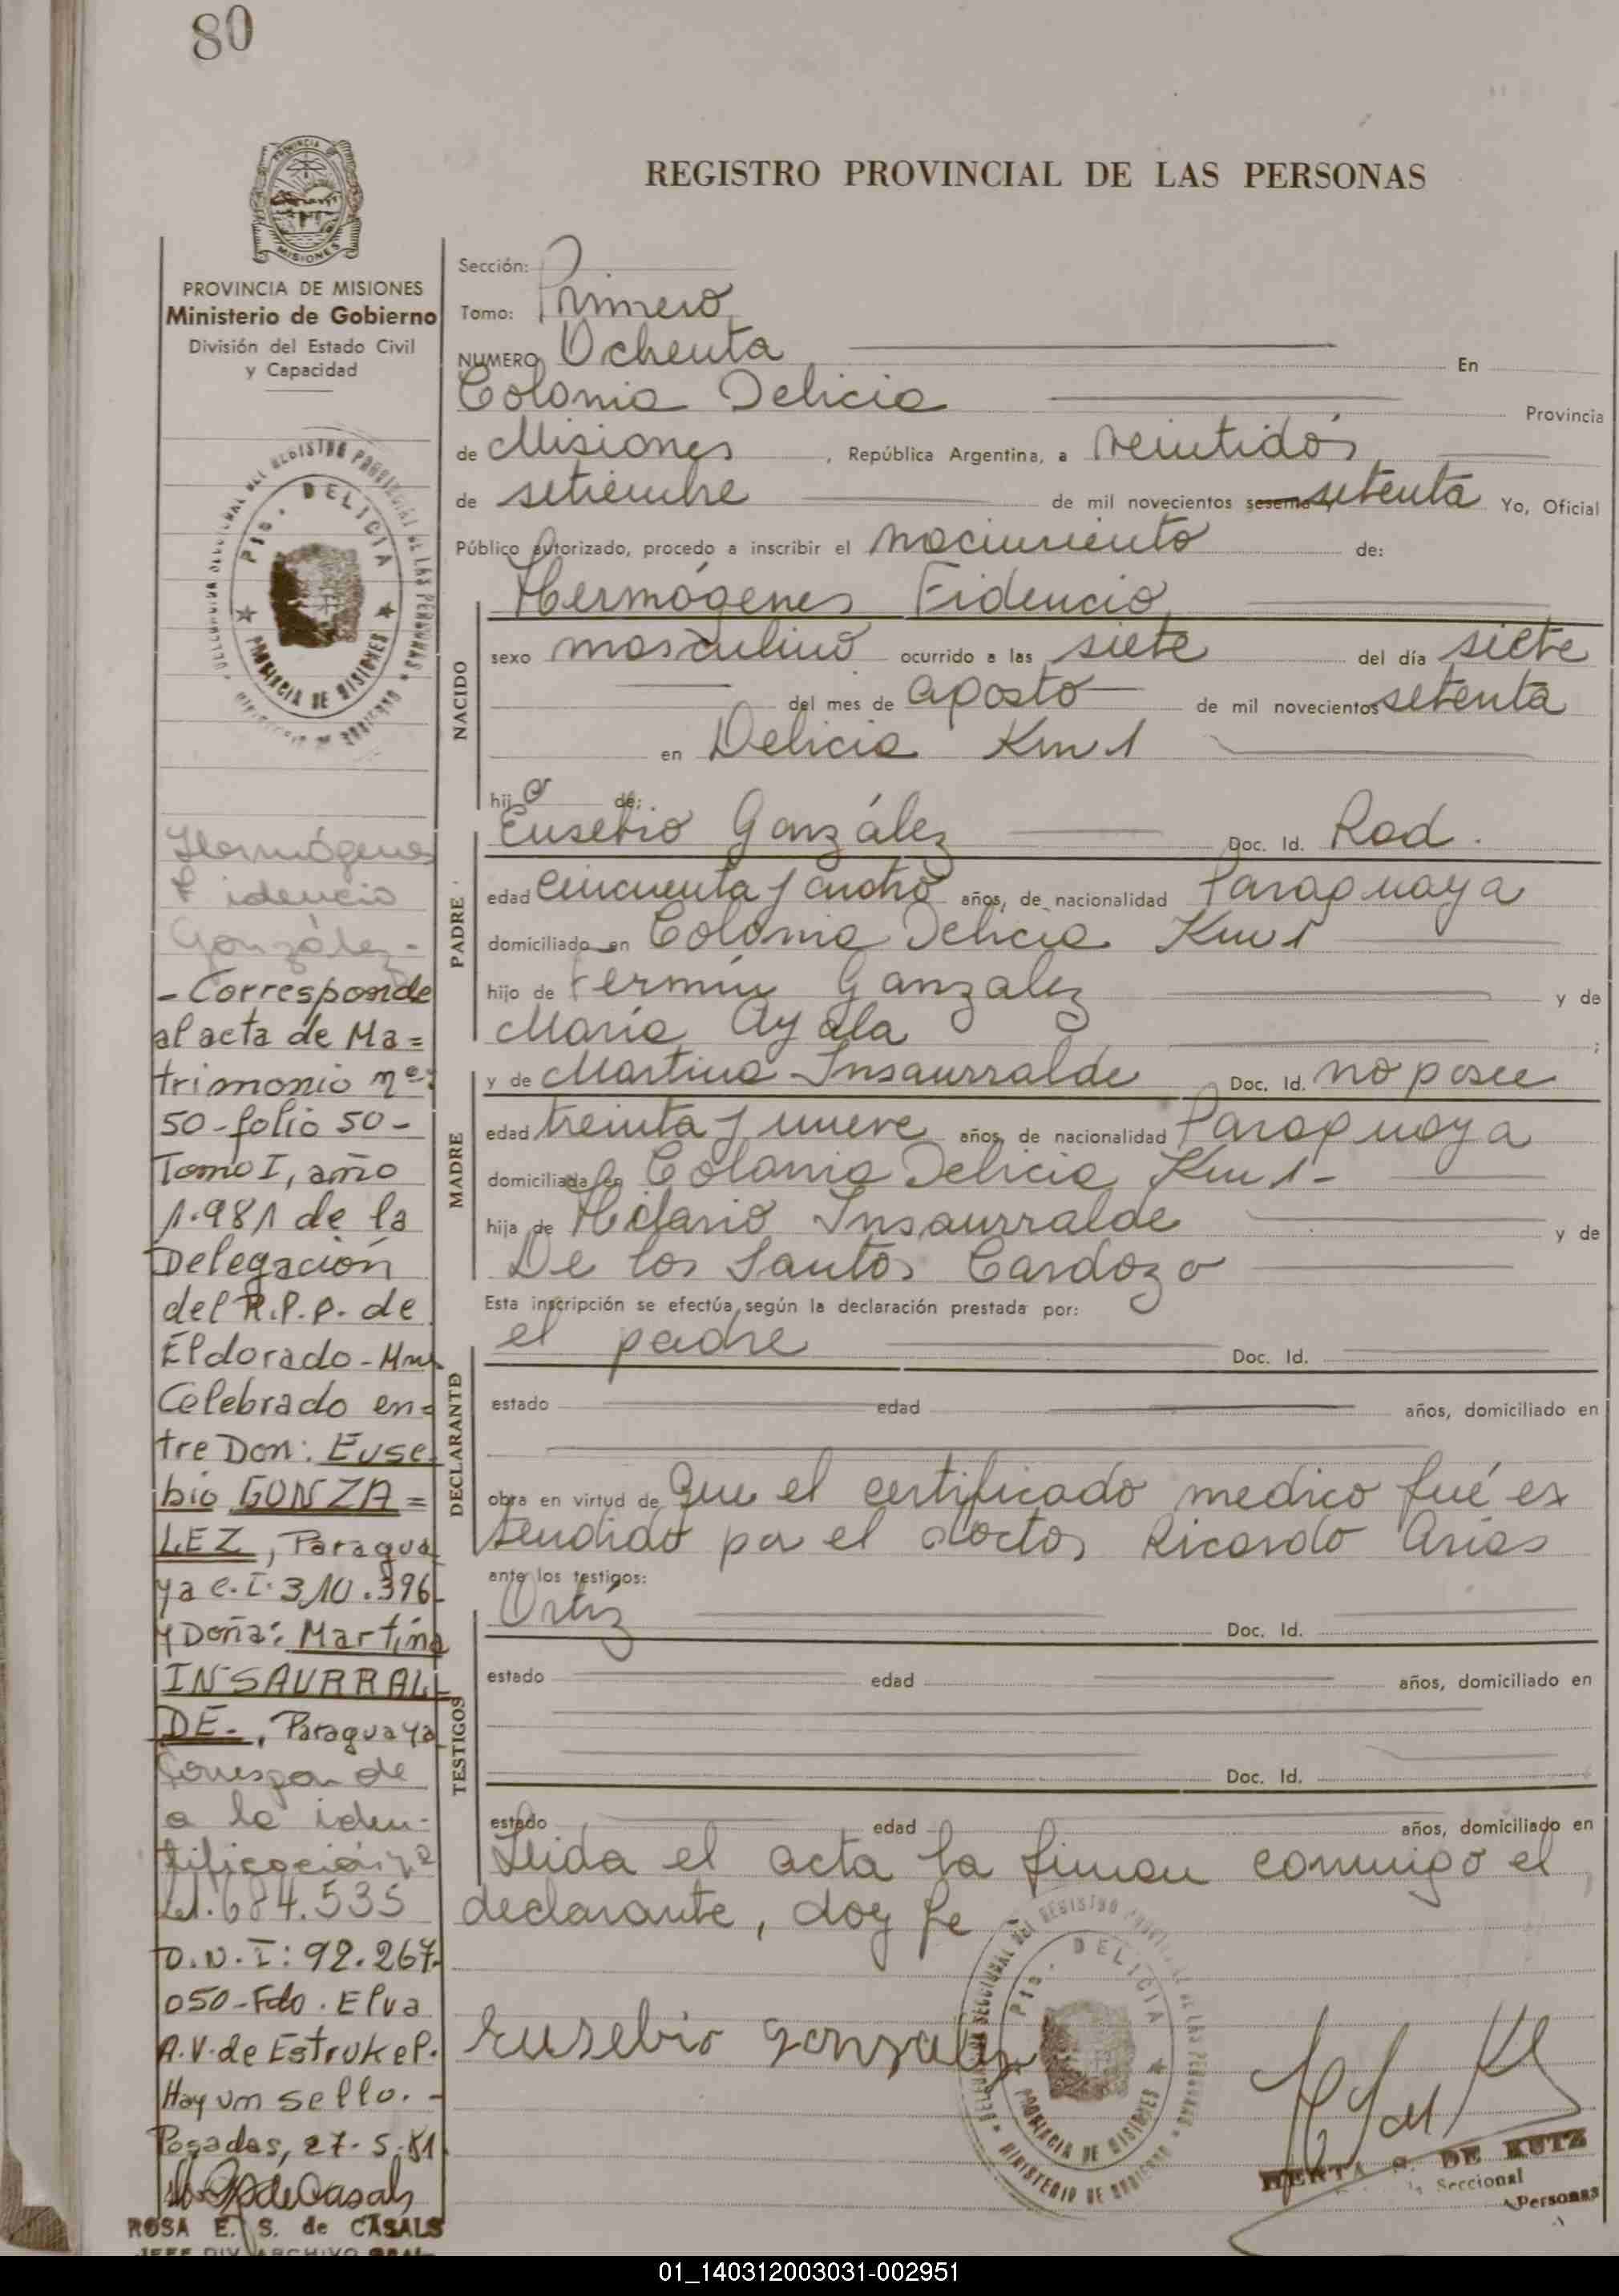 80
REGISTRO PROVINCIAL DE LAS PERSONAS
PROVINCIA MISIONES
PROVINCIA DE MISIONES
Ministerio de Gobierno
División del Estado Civil
y Capacidad
DELICIA
PROVINCIA DE MISIONES
Hermógenes
Fidencio
González.-
- Corresponde
al acta de Ma=
trimonio nº:
50-folio 50-
Tomo I, año
1.981 de la
Delegación
del R.P.P. de
Eldorado-Mnes
Celebrado en=
tre Don: Euse
bio GONZA=
LEZ, Paragua
ya C.I. 310.396-
y Doña: Martina
INSAURRAL
DE-, Paraguaya
Correspon de
a la iden-
tificación nº
684.535
D.N.I: 92.267.
050-Fdo. Elva
A.V. de Estrukel.
Hay un sello.-
Posadas, 27-5-81
ROSA E. S. de CASALS
JEFE DIV. ARCHIVO GRAL.
Sección:
Tomo: Primero
NUMERO Ochenta En
Colonia Delicia Provincia
de Misiones, República Argentina, a veintidós
de setiembre de mil novecientos sesenta setenta Yo, Oficial
Público autorizado, procedo a inscribir el nacimiento de:
NACIDO
Hermógenes Fidencio
sexo masculino ocurrido a las siete del día siete
del mes de agosto de mil novecientos setenta
en Delicia Km 1
hijo de:
PADRE
Eusebio González Doc. Id. Rad.
edad cincuenta y cuatro años, de nacionalidad Paraguaya
domiciliado en Colonia Delicia Km 1
hijo de Fermín Gonzalez y de
María Ayala ;
MADRE
y de Martina Insaurralde Doc. Id. no posee
edad treinta y nueve años, de nacionalidad Paraguaya
domiciliada en Colonia Delicia Km 1-
hija de Hilario Insaurralde y de
De los Santos Cardozo
Esta inscripción se efectúa según la declaración prestada por:
DECLARANTE
el padre Doc. Id.
estado edad años, domiciliado en
obra en virtud de que el certificado medico fué ex
tendido por el doctor Ricardo Arias
ante los testigos:
TESTIGOS
Ortiz Doc. Id.
estado edad años, domiciliado en
Doc. Id.
estado edad años, domiciliado en
Leida el acta la firman conmigo el
declarante, doy fe
Eusebio Gonzalez
DELICIA
PROVINCIA DE MISIONES
HERTA DE KUTZ
Seccional
Personas
01_140312003031-002951